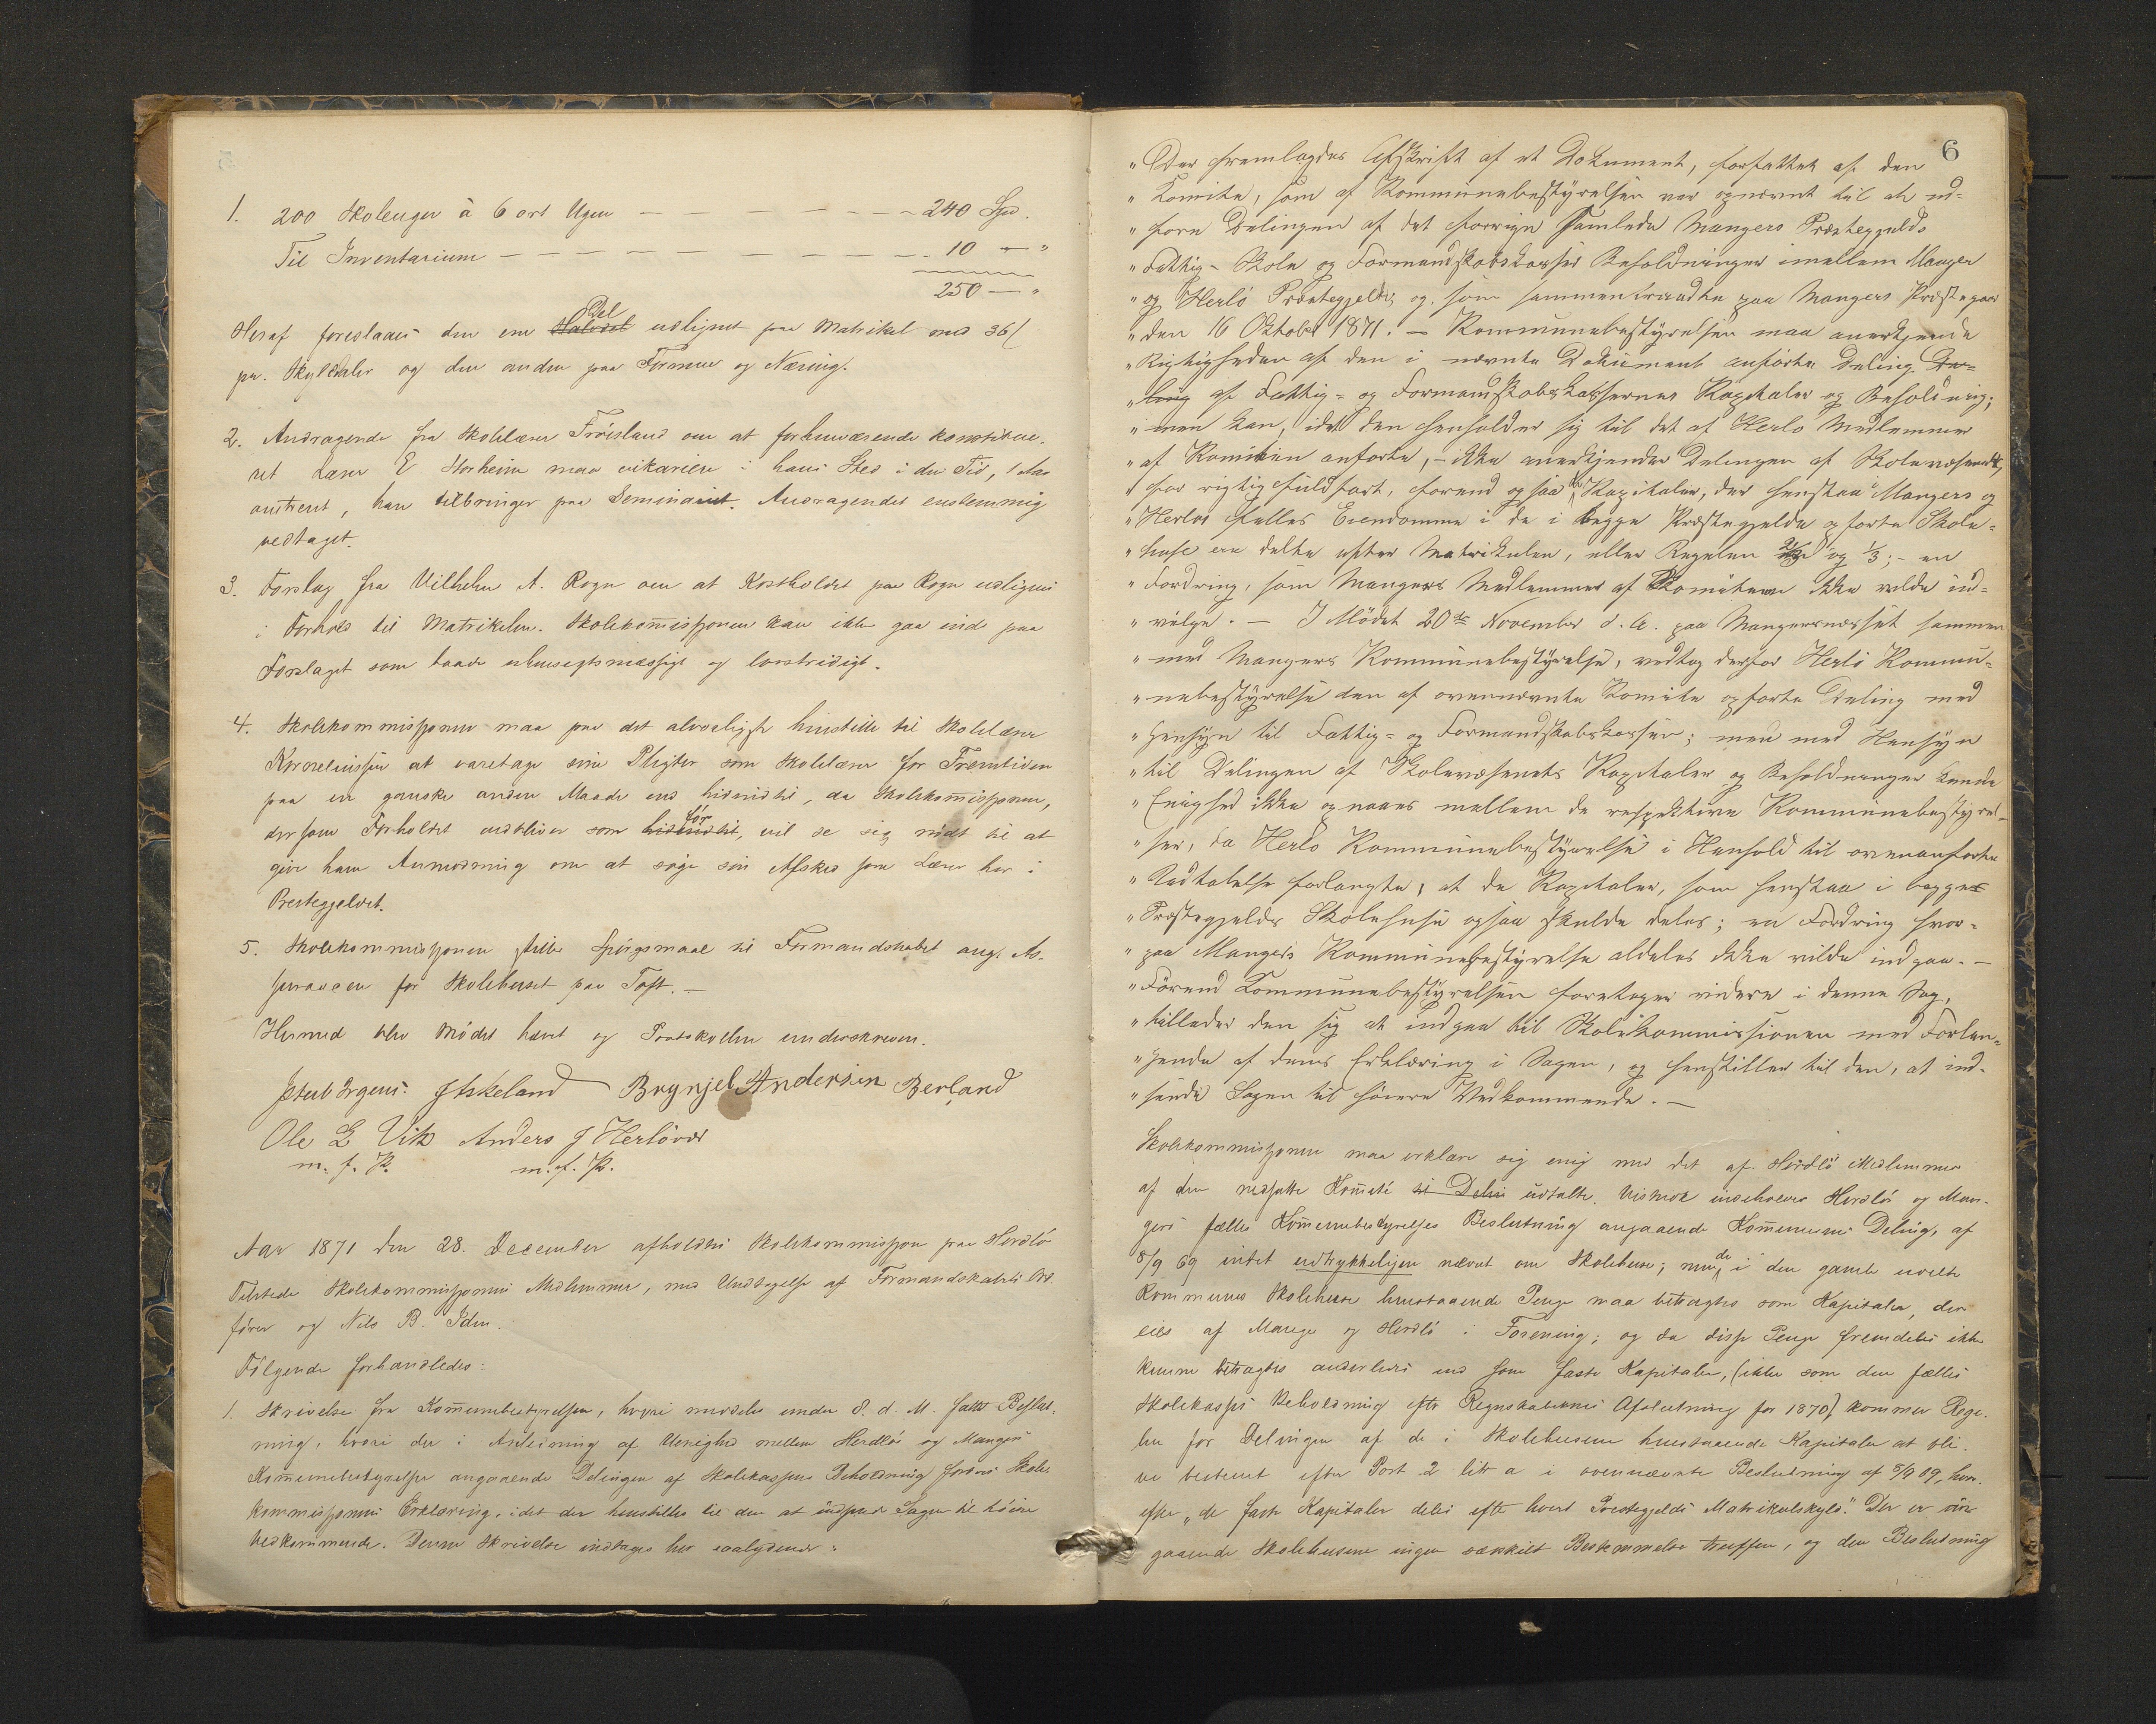 1. 200 Skoleuger à 6 ort Ugen — — — — — — — 240 Spd.
Til Inventarium — — — — — — — — — — 10 — "
250 — "
Heraf foreslaaes den ene Halvdel Del udlignet paa Matrikel med 36 ſ
pr. Skyldaler og den anden paa Formue og Næring.
2. Andragende fra Skolelærer Fröisland om at forhenværende konstitue-
ret Lærer E Storheim maa vikariere i hans Sted i den Tid, 1 Aar
omtrent, han tilbringer paa Seminariet. Andragendet enstemmig
vedtaget.
3. Forslag fra Vilhelm A. Rogn om at Kostholdet paa Rogn udlignes
i Forhold til Matrikelen. Skolekommissjonen kan ikke gaa ind paa
Forslaget som baade uhensigtsmæssigt og lovstridigt.
4. Skolekommissjonen maa paa det alvorligste henstille til Skolelærer
Kornelinssen at varetage sine Pligter som Skolelærer for Fremtiden
paa en ganske anden Maade end hidindtil, da Skolekommissjonen,
dersom Forholdet vedbliver som hidindtil för, vil se sig nödt til at
give ham Anmodning om at söge sin Afsked som Lærer her i
Prestegjeldet.
5. Skolekommissjonen stiller Spörgsmaal til Formandskabet ang. As-
surancen for Skolehuset paa Toft. —
Hermed blev Mödet hævet og Protokollen underskreven.
J Askeland Brynjel Andersen Berland
Ole L Vik Anders J Herlövær
m. f. P. m. f. P.
Aar 1871 den 28. December afholdtes Skolekommissjon paa Herdlö
Tilstede Skolekommissjonens Medlemmer, med Undtagelse af Formandskabets Ord-
förer og Nils B. Idsn.
Fölgende forhandledes:
1. Skrivelse fra Kommunebestyrelsen, hvori meddeles under d. M. fattet Beslut-
ning, hvori der i Anledning af Uenighed mellem Herdlös og Mangers
Kommunebestyrelser angaaende Delingen af Skolekassens Beholdning fordres Skole-
kommissjonens Erklæring, idet der henstilles til den at indsende Sagen til höiere
Vedkommende. Denne Skrivelse indtages her saalydende:
6
"Der fremlagdes Afskrift af et Dokument, forfattet af den
"Komite, som af Kommunebestyrelsen var opnævnt til at ud-
"före Delingen af det forrige samlede Mangers Præstegjelds
"Fattig- Skole og Formandskabskasses Beholdninger imellem Manger
"og Herlö Præstegjelde, og som sammentraadte paa Mangers Præstegaard
"den 16 Oktober 1871. — Kommunebestyrelsen maa anerkjende
"Rigtigheden af den i nævnte Dokument anförte Deling De-
"ling af Fattig- og Formandskabskassernes Kapitaler og Beholdning;
"men kan, idet den henholder sig til det af Herlö Medlemmer
"af Komiteen anförte, — ikke anerkjende Delingen af Skolevæsenets,
"for rigtig fuldfört, forend ogsaa de Kapitaler, der henstaa Mangers og
"Herlös fælles Eiendomme i de i begge Præstegjelde opförte Skole-
"huse ere delte efter Matrikulen, eller Regelen 2/3 og 1/3; — en
"Fordring, som Mangers Medlemmer af Komiteen ikke vilde ind-
"vilge. — I Mödet 20de November d. A. paa Mangersnæsset sammen
"med Mangers Kommunebestyrelse, vedtog derfor Herlö Kommu-
"nebestyrelse den af ovennævnte Komite opförte Deling med
"Hensyn til Fattig- og Formandskabskassen; men med Hensyn
"til Delingen af Skolevæsenets Kapitaler og Beholdninger kunde
"Enighed ikke opnaaes mellem de respektive Kommunebestyrel-
"ser, da Herlö Kommunebestyrelse i Henhold til ovenanförte
"Udtalelse forlangte, at de Kapitaler, som henstaa i begge
"Præstegjelds Skolehuse ogsaa skulde deles; en Fordring hvor-
"paa Mangers Kommunebestyrelse aldeles ikke vilde indgaa. —
"Förend Kommunebestyrelsen foretager videre i denne Sag,
"tillader den sig at indgaa til Skolekommissionen med Forlan-
"gende af dens Erklæring i Sagen, og henstiller til den, at ind-
"sende Sagen til höiere Vedkommende. —
Skolekommissjonen maa erklære sig enig med det af Herdlö Medlemmer
af den nedsatte Komité til Delin udtalte. Vistnok indeholder Herdlös og Man-
gers fælles Kommunebestyrelses Beslutning angaaende Kommunens Deling, af
8/9 69 intet udtrykkeligen nævnt om Skolehuse; men de i den gamle udelte
Kommunes Skolehuse henstaaende Penge maa betragtes som Kapitaler, der
eies af Manger og Herdlö i Forening; og da disse Penge fremdeles ikke
kunne betragtes anderledes end som faste Kapitaler, (ikke som den fælles
Skolekasses Beholdning efter Regnskabernes Afslutning for 1870) kommer Rege-
len for Delingen af de i Skolehusene henstaaende Kapitaler at bli-
ve bestemt efter Post 2 litr a i ovennævnte Beslutning af 8/9 69, hvor-
efter "de faste Kapitaler deles efter hvert Prestegjelds Matrikulskyld." Der er ved-
gaaende Skolehusene ingen særskilt Bestemmelse truffen, og den Beslutning